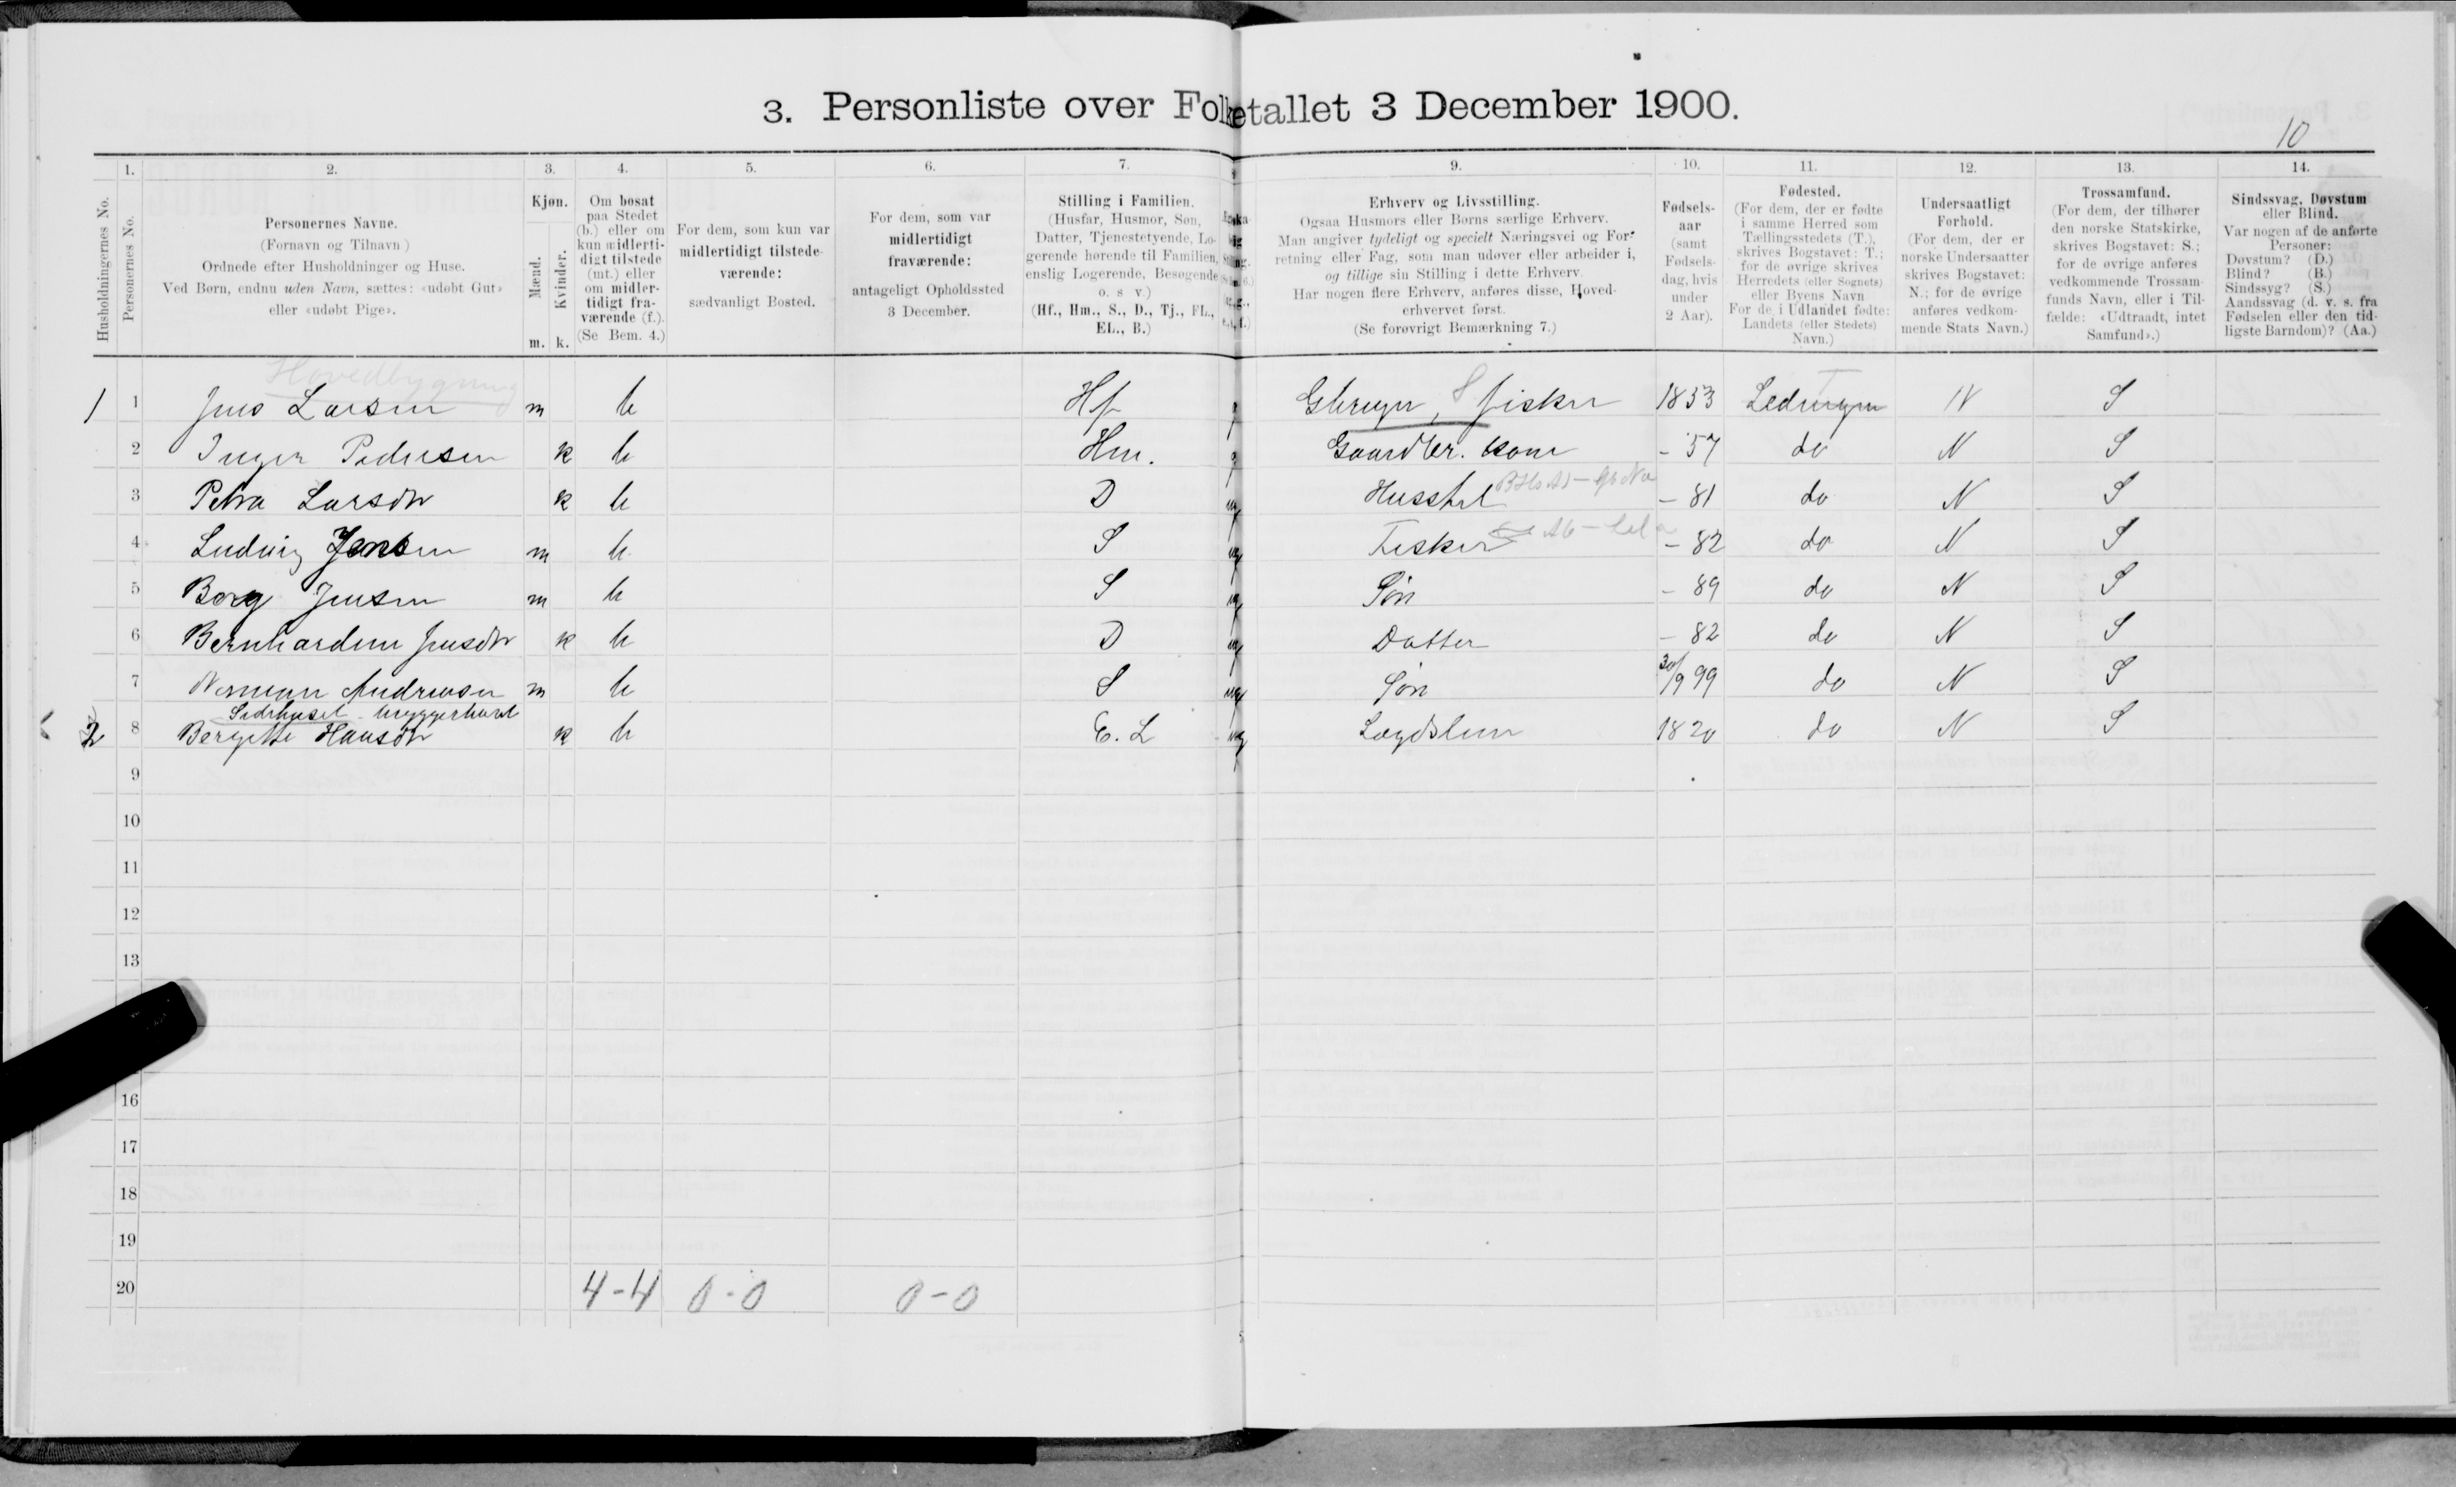 3. Personliste over Folketallet 3 December 1900.
10
1. 2. 3. 4. 5. 6. 7. 9. 10. 11. 12. 13. 14.
Husholdningernes No.
Personernes No.
Personernes Navne.
(Fornavn og Tilnavn)
Ordnede efter Husholdninger og Huse.
Ved Børn, endnu uden Navn, sættes: «udøbt Gut»
eller «udøbt Pige».
Kjøn.
Mænd.
Kvinder.
m. k.
Om bosat
paa Stedet
(b.) eller om
kun midlerti-
digt tilstede
(mt.) eller
om midler-
tidigt fra-
værende (f.).
(Se Bem. 4.)
For dem, som kun var
midlertidigt tilstede-
værende:
sædvanligt Bosted.
For dem, som var
midlertidigt
fraværende:
antageligt Opholdssted
3 December.
Stilling i Familien.
(Husfar, Husmor, Søn,
Datter, Tjenestetyende, Lo-
gerende hørende til Familien,
enslig Logerende, Besøgende
o. s v.)
(Hf., Hm., S., D., Tj., FL.,
EL., B.)
Erhverv og Livsstilling.
Ogsaa Husmors eller Børns særlige Erhverv.
Man angiver tydeligt og specielt Næringsvei og For-
retning eller Fag, som man udøver eller arbeider i,
og tillige sin Stilling i dette Erhverv.
Har nogen flere Erhverv, anføres disse, Hoved-
erhvervet først.
(Se forøvrigt Bemærkning 7.)
Fødsels-
aar
(samt
Fødsels-
dag, hvis
under
2 Aar).
Fødested.
(For dem, der er fødte
i samme Herred som
Tællingsstedets (T.),
skrives Bogstavet: T.;
for de øvrige skrives
Herredets (eller Sognets)
eller Byens Navn
For de i Udlandet fødte:
Landets (eller Stedets)
Navn.)
Undersaatligt
Forhold.
(For dem, der er
norske Undersaatter
skrives Bogstavet:
N.; for de øvrige
anføres vedkom-
mende Stats Navn.)
Trossamfund.
(For dem, der tilhører
den norske Statskirke,
skrives Bogstavet: S.;
for de øvrige anføres
vedkommende Trossam-
funds Navn, eller i Til-
fælde: «Udtraadt, intet
Samfund».)
Sindssvag, Døvstum
eller Blind.
Var nogen af de anførte
Personer:
Døvstum? (D.)
Blind? (B.)
Sindssyg? (S.)
Aandssvag (d. v. s. fra
Fødselen eller den tid-
ligste Barndom)? (Aa.)
Hovedbygning
1 1 Jens Larsen m b Hf g Gbruger, Fisker 1853 N S
2 Inger Pedersen k b Hm. g Gaardbr. kone - 57 do N S
3 Petra Larsdtr k b D ug Husstel - 81 do N S
4 Ludvig Jensen m b S ug Fisker - 82 do N S
5 Berg Jensen m b S ug Søn - 89 do N S
6 Bernhardine Jensdtr k b D ug Datter - 82 do N S
7 Andreasen m b S ug Søn 30/9 99 do N S
Sidehuset - bryggerhuset
2 8 Bergitte Hansdtr k b E. L ug Lægdslem 1820 do N S
9
10
11
12
13
16
17
18
19
20 4-4 0-0 0-0